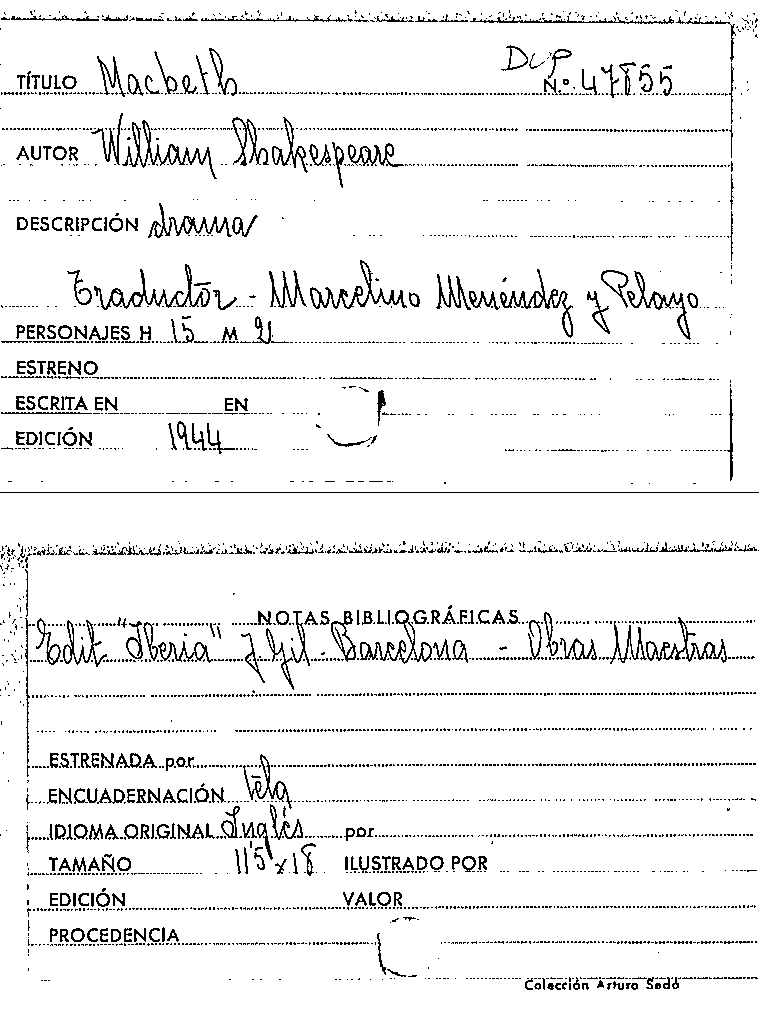 DUP
TÍTULO Macbeth N.º 47855
AUTOR William Shakespeare
DESCRIPCIÓN drama
Traductor - Marcelino Menéndez y Pelayo
PERSONAJES H 15 M
ESTRENO
ESCRITA EN EN
EDICIÓN 1944
NOTAS BIBLIOGRÁFICAS
Edit "Iberia" J. Gil - Barcelona - Obras Maestras
ESTRENADA por
ENCUADERNACIÓN tela
IDIOMA ORIGINAL Inglés por
TAMAÑO 11'5 x 18 ILUSTRADO POR
EDICIÓN VALOR
PROCEDENCIA
Colección Arturo Sedó